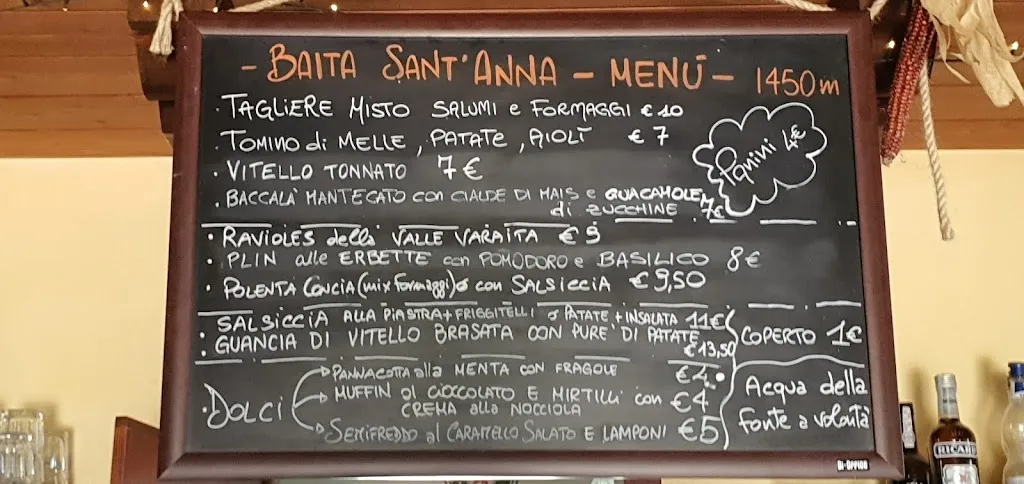 - BAITA SANT'ANNA - MENÚ - 1450m
· TAGLIERE MISTO SALUMI e FORMAGGI € 10
· TOMINO di MELLE, PATATE, AIOLÌ € 7
· VITELLO TONNATO 7 €
· BACCALÀ MANTECATO con CIALDE DI MAIS e GUACAMOLE
di ZUCCHINE 7€
Panini 4€
· RAVIOLES della VALLE VARAITA € 9
· PLIN alle ERBETTE con POMODORO e BASILICO 8€
· POLENTA CONCIA (mix formaggi) o con SALSICCIA € 9,50
· SALSICCIA ALLA PIASTRA + FRIGGITELLI o PATATE + INSALATA 11€
· GUANCIA DI VITELLO BRASATA CON PURE' DI PATATE
€ 13,50
COPERTO 1€
· DOLCI
PANNACOTTA alla MENTA CON FRAGOLE €4
MUFFIN al CIOCCOLATO E MIRTILLI con
CREMA alla NOCCIOLA €4
SEMIFREDDO al CARAMELLO SALATO E LAMPONI €5
Acqua della
Fonte a volontà
Bi-Office
RICARD